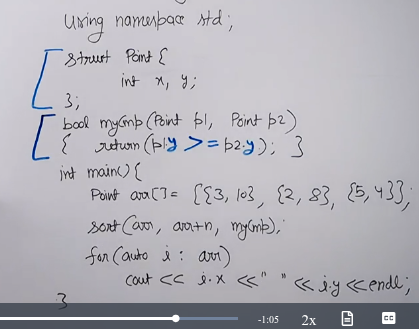 using namespace std;
struct Point {
int x, y;
};
bool myCmp(Point p1, Point p2)
{ return(p1.y >= p2.y); }
int main(){
Point arr[]= {{3, 10}, {2, 8}, {5, 4}};
sort(arr, arr+n, myCmp);
for(auto i : arr)
cout << i.x << " " << i.y << endl;
}
-1:05 2x CC